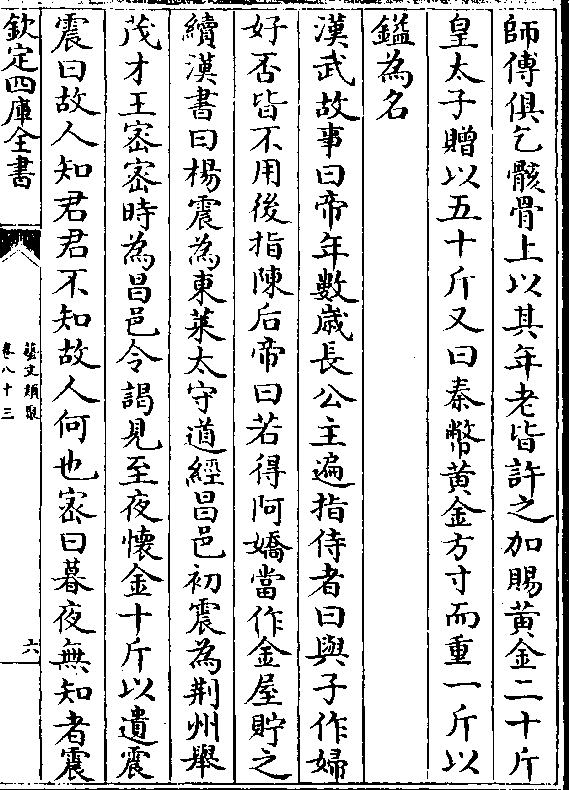 師傅俱乞骸骨上以其年老皆許之加賜黃金二十斤
皇太子贈以五十斤又曰秦幣黃金方寸而重一斤以
鎰為名
漢武故事曰帝年數歲長公主遍指侍者曰與子作婦
好否皆不用後指陳后帝曰若得阿嬌當作金屋貯之
續漢書曰楊震為東萊太守道經昌邑初震為荆州舉
茂才王宻宻時為昌邑令謁見至夜懷金十斤以遺震
震曰故人知君君不知故人何也宻曰暮夜無知者震
欽定四庫全書
藝文類聚
卷八十三
六